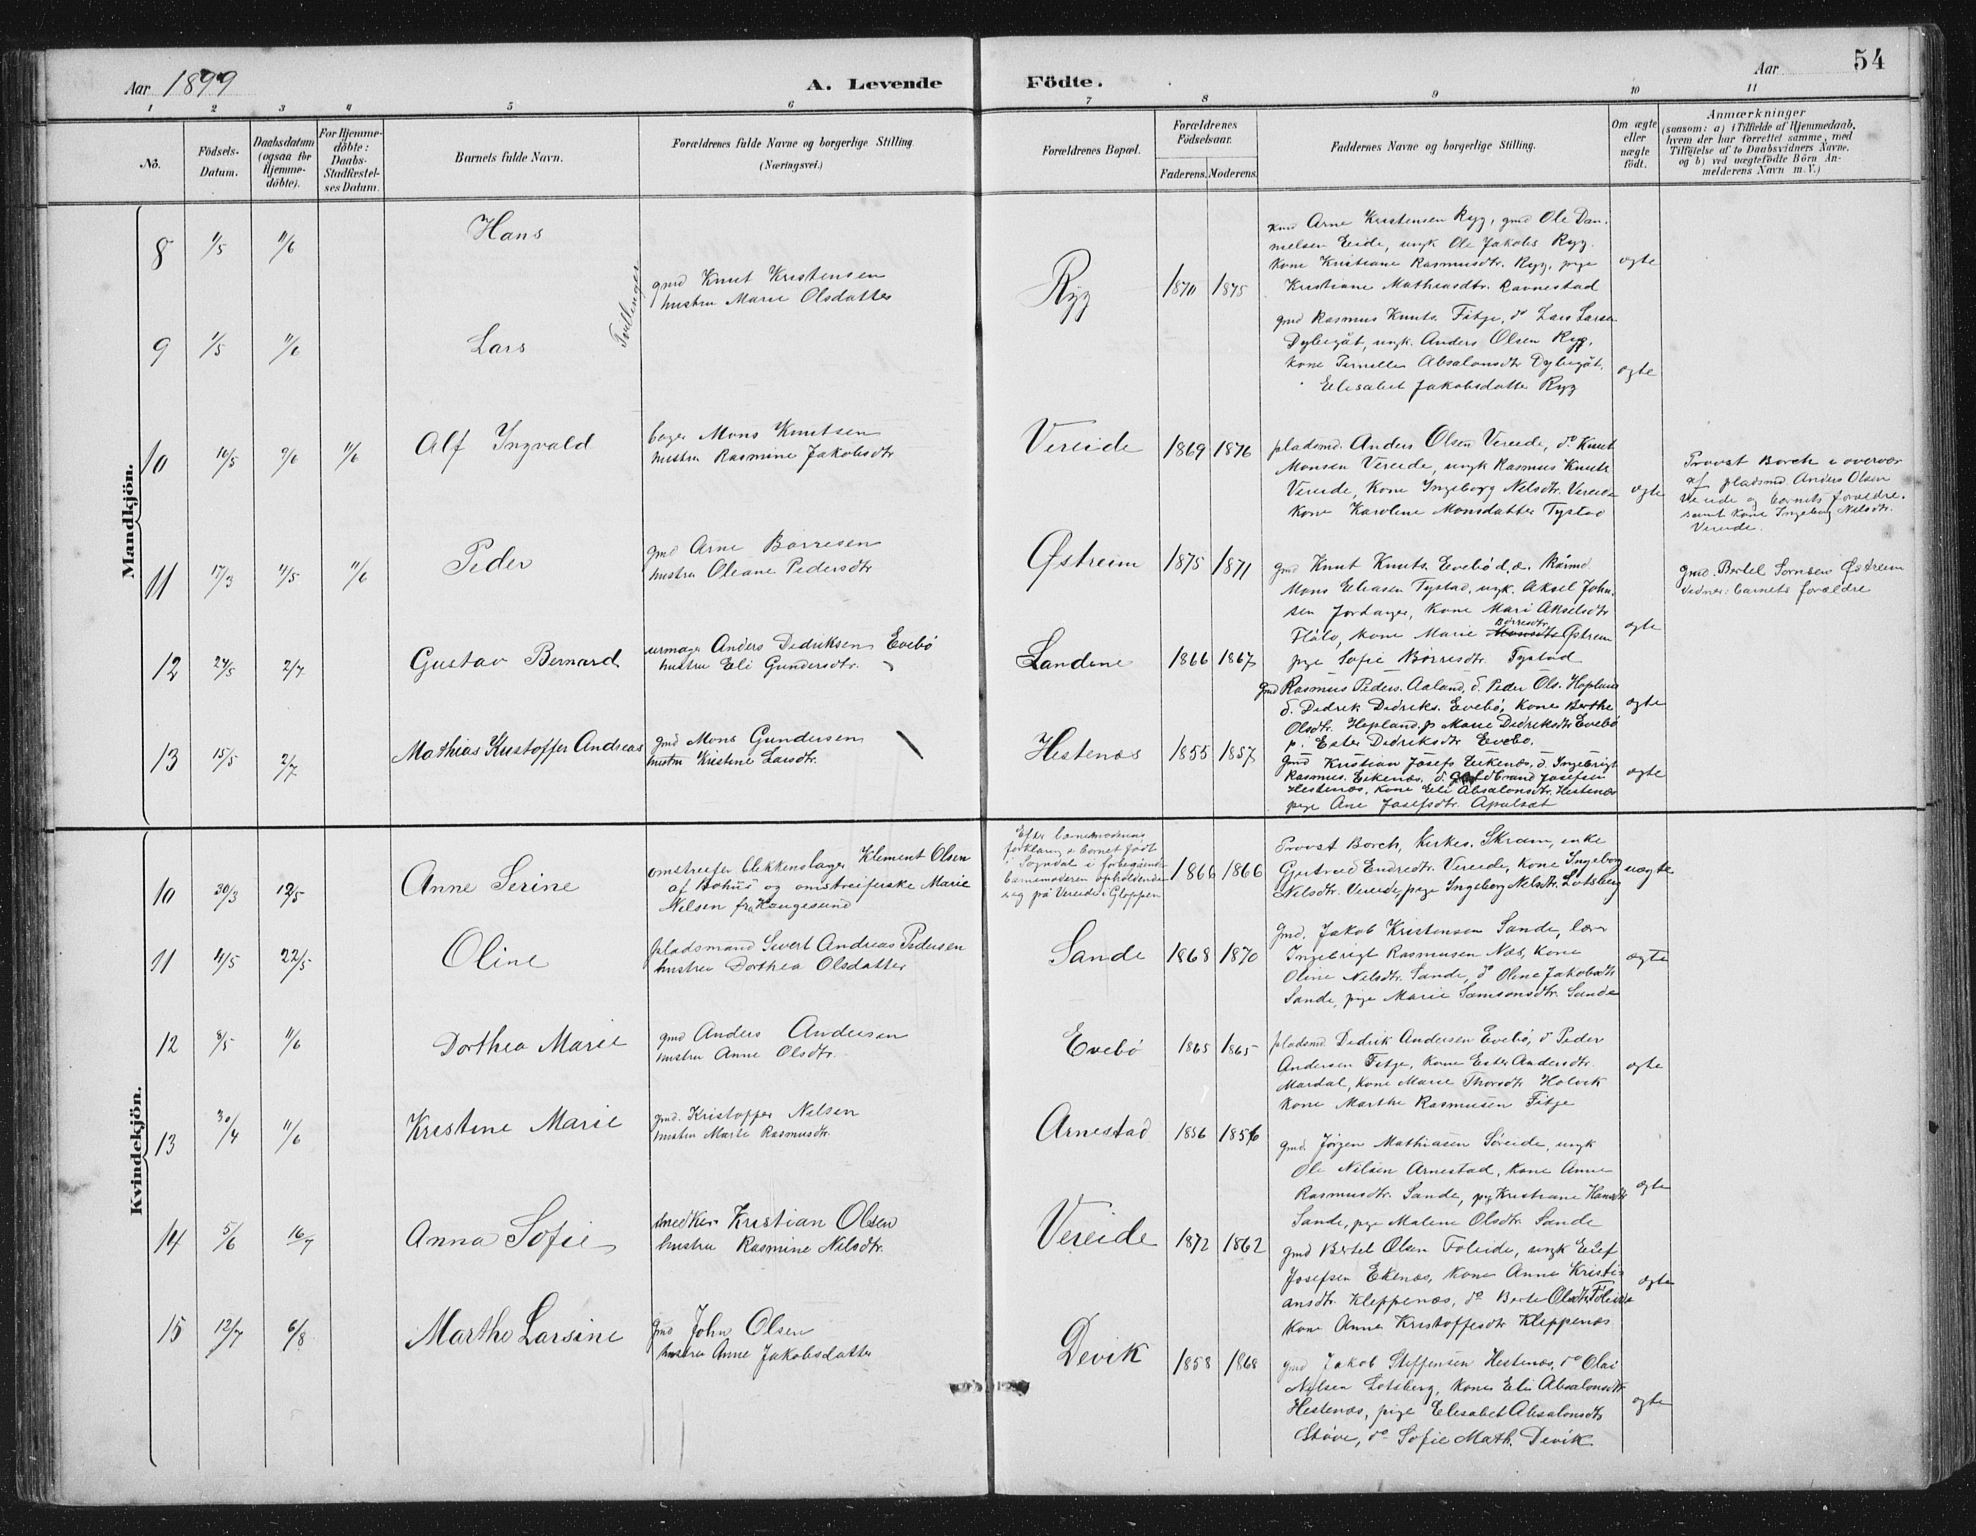 Aar 1899
A. Levende Födte.
Aar
54
1 2 3 4 5 6 7 8 9 10 11
No.
Födsels-Datum.
Daabsdatum (ogsaa for Hjemmedöbte).
For Hjemmedöbte: Daabs-Stadfæstelses Datum.
Barnets fulde Navn.
Forældrenes fulde Navne og borgerlige Stilling (Næringsvei.)
Forældrenes Bopæl.
Forældrenes Födselsaar.
Faderens. Moderens.
Faddernes Navne og borgerlige Stilling.
Om ægte eller uægte födt.
Anmærkninger
(saasom: a) i Tilfælde af Hjemmedaab, hvem der har forrettet samme, med Tilföielse af to Daabsvidners Navne, og b) ved uægtefödte Börn Anmelderens Navn m. V.)
Mandkjön.
8 1/5 11/6 Hans
Tvillinger
gmd Knut Kristensen
hustru Marie Olsdatter
Ryg 1870 1875
Arne Kristensen Ryg, gmd Ole Dan-
nielsen Eide, ungk Ole Jakobs Ryg.
Kone Kristiane Rasmusdtr. Ryg, pige
Kristiane Mathiasdtr. Ravnestad
ægte
9 1/5 11/6 Lars
gmd Rasmus Knuts. Fitje, do Lars Larsen
ungk. Anders Olsen Ryg,
kone Pernille Absalonsdtr
Elisabet Jakobsdatter Ryg
ægte
10 16/5 9/6 11/6 Alf Ingvald
Mons Knutsen
hustru Rasmine Jakobsdtr
Vereide 1869 1876
pladsmd. Anders Olsen Vereide, do Knut
Monsen Vereide, ungk Rasmus Knuts
Vereide, Kone Ingeborg Nilsdtr. Vereide
Kone Karoline Monsdatter Tystad
ægte
Provst Borch i overvær
af pladsmd Anders Olsen
Vereide og barnets forældre.
samt kone Ingeborg Nilsdtr.
Vereide.
11 17/3 4/5 11/6 Peder
gmd Arne Börresen
hustru Oleane Pedersdtr
Østreim 1875 1871
gmd Knut Knuts. Evebö
Mons Eliasen Tystad, ungk. Aksel John-
sen Jordanger, Kone Mari Akselsdtr
kone Marie Börresdtr. Østreim
pige Sofie Börresdtr. Tystad
ægte
gmd. Bertel Östreim
Vidner: barnets forældre
12 24/5 2/7 Gustav Bernard
urmager Anders Didriksen Evebö
hustru Eli Gundersdtr.
Sandene 1866 1867
gmd Rasmus Peders. Aaland, d. Peder Ols. Hopland
d. Didrik Didriks. Evebö, Kone Berthe
Olsdtr. Hopland, p Marie Didriksdtr Evebö
p. Ester Didriksdtr Evebö.
ægte
13 15/5 2/7 Mathias Kristoffer Andreas
gmd Mons Gundersen
hustru Kristine Larsdtr.
Hestenæs 1855 1857
Gmd Kristian Josefs Eikenæs, d. Ingebrigt
Rasmus. Eikenæs, d. Josefsen
Hestenæs, Kone Eli Absalonsdtr. Hestenæs
pige Ane Josefsdtr. Apalset
ægte
Kvindekjön.
10 30/3 12/5 Anne Serine
omstreifer blikkenslager Klement Olsen
af Bohus og omstreiferske Marie
Nilsen fra Haugesund
Efter barnemoderens
forklaring er barnet födt
i Sogndal i forbigaaende
barnemoderen opholdende
sig på Vereide i Gloppen
1866 1866
Provst Borch, Kirkes. Skram, enke
Gjertrud Endredtr. Vereide, Kone Ingeborg
Nilsdtr. Vereide, pige Ingeborg Nilsdtr. Lotsberg
uægte
11 4/5 22/5 Oline
pladsmand Sivert Andreas Pedersen
hustru Dorthea Olsdatter
Sande 1868 1870
gmd. Jakob Kristensen Sande, lærer
Ingebrigt Rasmussen Næs, Kone
Oline Nilsdtr. Sande, do Oline Jakobsdtr
Sande, pige Marie Samsonsdtr. Sande
ægte
12 8/5 11/6 Dorthea Marie
gmd Anders Andersen
hustru Anne Olsdtr.
Evebö 1865 1865
pladsmd Didrik Andersen Evebö, d Peder
Andersen Fitje, Kone Ester Andersdtr.
Mardal, Kone Marie Thorsdtr Holvik
Kone Marthe Rasmusen Fitje
ægte
13 30/4 11/6 Kristine Marie
gmd. Kristoffer Nilsen
hustru Marie Rasmusdtr.
Arnestad 1856 1856
gmd. Jörgen Mathiasen Söreide, ungk
Ole Nilsen Arnestad, Kone Anne
Rasmusdtr. Sande, pige Kristiane Hansdtr
Sande, pige Malene Olsdtr. Sande
ægte
14 5/6 16/7 Anna Sofie
snedker Kristian Olsen
hustru Rasmine Nilsdtr.
Vereide 1872 1862
gmd Bertel Olsen Foleide, ungk
Josefsen Ekenæs, kone Anne Kristi-
ansdtr. Kleppenæs, do Berte Olsdtr. Foleide
Kone Anna Kristoffersdtr Kleppenæs
ægte
15 12/7 6/8 Marthe Larsine
gmd John Olsen
hustru Anne Jakobsdatter
Devik 1858 1868
gmd Jakob Steffensen Hestenæs, do Olai
Nilsen Lotsberg, kone Eli Absalonsdtr
Hestenæs, pige Elisabet Absalonsdtr
Störe, do Sofie Math. Devik
ægte